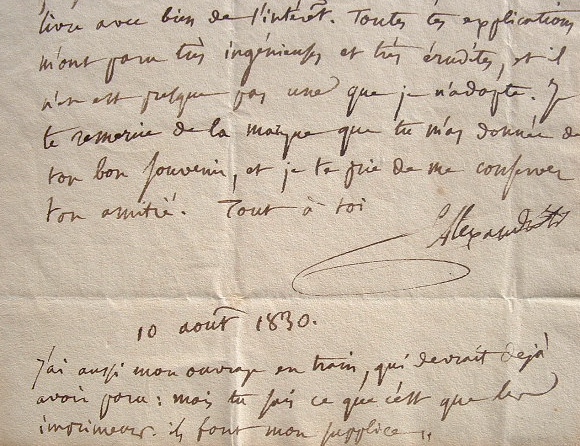 livre avec bien de l'intérêt. Toutes tes explications
m'ont paru très ingénieuses et très érudites, et il
n'en est presque pas une que je n'adopte. Je
te remercie de la marque que tu m'as donnée de
ton bon souvenir, et je te prie de me conserver
ton amitié. Tout à toi
10 août 1830.
J'ai aussi mon ouvrage en train, qui devrait déjà
avoir paru : mais tu sais ce que c'est que les
imprimeurs. ils font mon supplice